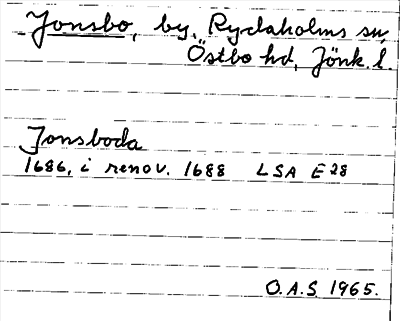 Jonsbo, by, Rydaholms sn,
Östbo hd, Jönk. l.
Jonsboda
1686, i renov. 1688 LSA E28
O.A.S. 1965.